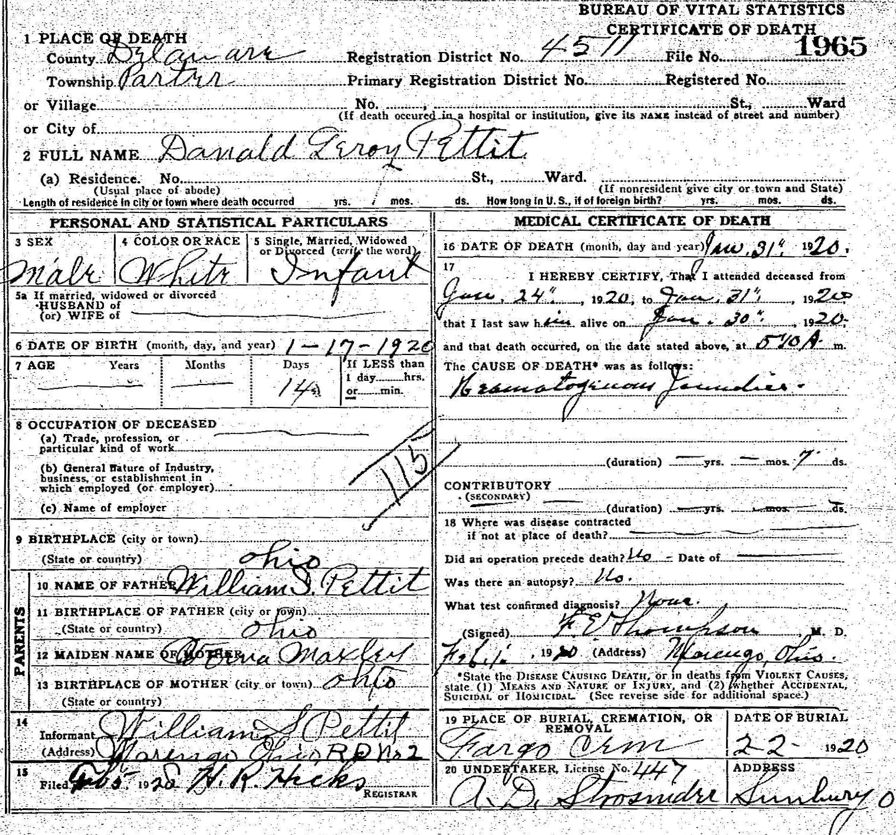 BUREAU OF VITAL STATISTICS
CERTIFICATE OF DEATH
1965
1 PLACE OF DEATH
County Delaware Registration District No. 4511 File No.
Township Porter Primary Registration District No. Registered No.
or Village No. , St., Ward
(If death occured in a hospital or institution, give its NAME instead of street and number)
or City of
2 FULL NAME Donald Leroy Pettit
(a) Residence. No. St., Ward.
(Usual place of abode) (If nonresident give city or town and State)
Length of residence in city or town where death occurred yrs. mos. ds. How long in U.S., if of foreign birth? yrs. mos. ds.
PERSONAL AND STATISTICAL PARTICULARS
3 SEX 4 COLOR OR RACE 5 Single, Married, Widowed
or Divorced (write the word)
Male White Infant
5a If married, widowed or divorced
HUSBAND of
(or) WIFE of
6 DATE OF BIRTH (month, day, and year) 1-17-1920
7 AGE Years Months Days If LESS than
1 day hrs.
14 or min.
8 OCCUPATION OF DECEASED
(a) Trade, profession, or
particular kind of work
(b) General Nature of Industry,
business, or establishment in
which employed (or employer)
(c) Name of employer
115
9 BIRTHPLACE (city or town)
(State or country) Ohio
PARENTS
10 NAME OF FATHER William S. Pettit
11 BIRTHPLACE OF FATHER (city or town)
(State or country) Ohio
12 MAIDEN NAME OF MOTHER Maxley
13 BIRTHPLACE OF MOTHER (city or town) Ohio
(State or country)
14
Informant William S Pettit
(Address) Marengo Ohio R D No 2
15
Filed Feb 5 1920 H. R. Hicks
REGISTRAR
MEDICAL CERTIFICATE OF DEATH
16 DATE OF DEATH (month, day and year) Jan. 31" 1920.
17
I HEREBY CERTIFY, That I attended deceased from
Jan. 24" , 1920, to Jan. 31" , 1920
that I last saw him alive on Jan. 30" , 1920,
and that death occurred, on the date stated above, at 5 10 A m.
The CAUSE OF DEATH* was as follows:
Heamatogenous Jaundice.
(duration) yrs. mos. 7 ds.
CONTRIBUTORY
(SECONDARY)
(duration) yrs. mos. ds.
18 Where was disease contracted
if not at place of death?
Did an operation precede death? No - Date of
Was there an autopsy? No.
What test confirmed diagnosis? None.
(Signed) F E Thompson M. D.
Feb. 1. , 1920 (Address) Marengo, Ohio.
*State the DISEASE CAUSING DEATH, or in deaths from VIOLENT CAUSES,
state (1) MEANS AND NATURE OF INJURY, and (2) whether ACCIDENTAL,
SUICIDAL or HOMICIDAL. (See reverse side for additional space.)
19 PLACE OF BURIAL, CREMATION, OR
REMOVAL
DATE OF BURIAL
Fargo Cem 2-2- 1920
20 UNDERTAKER, License No. 447 ADDRESS
A. D. Strosnider Sunbury O